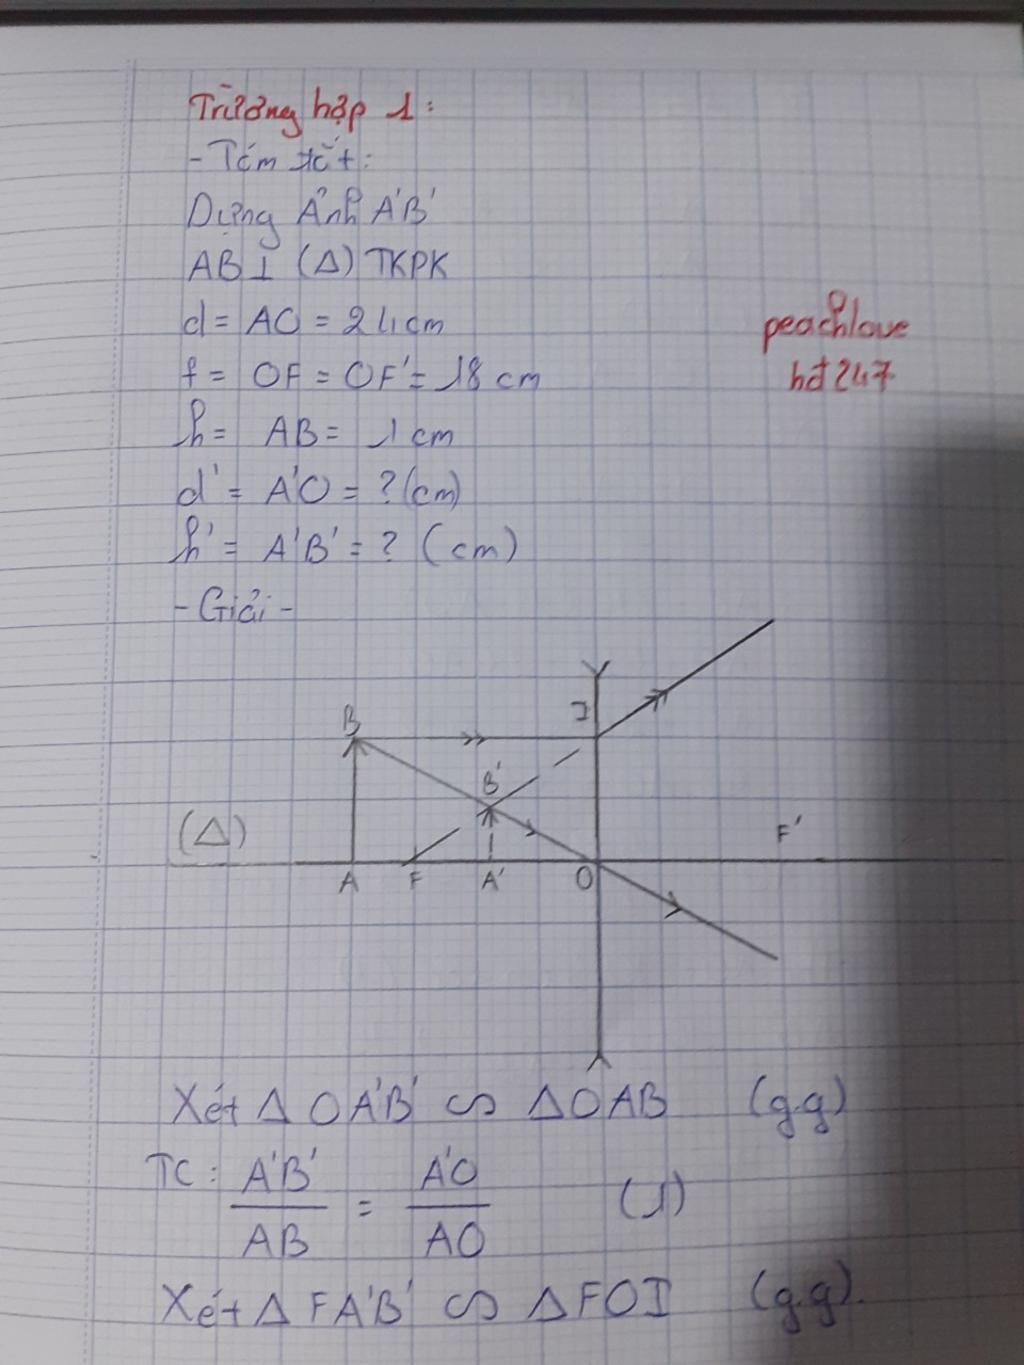 Trường hợp 1:
- Tóm tắt:
Dựng Ảnh A'B'
AB ⊥ (Δ) TKPK
d = AO = 24 cm
f = OF = OF' = 18 cm
h = AB = 1 cm
d' = A'O = ? (cm)
h' = A'B' = ? (cm)
peachlove
hđ 247
- Giải -
B I
B'
(Δ) F'
A F A' O
Xét Δ OA'B' ∽ Δ OAB (g.g)
TC: A'B'/AB = A'O/AO (1)
Xét Δ FA'B' ∽ Δ FOI (g.g).